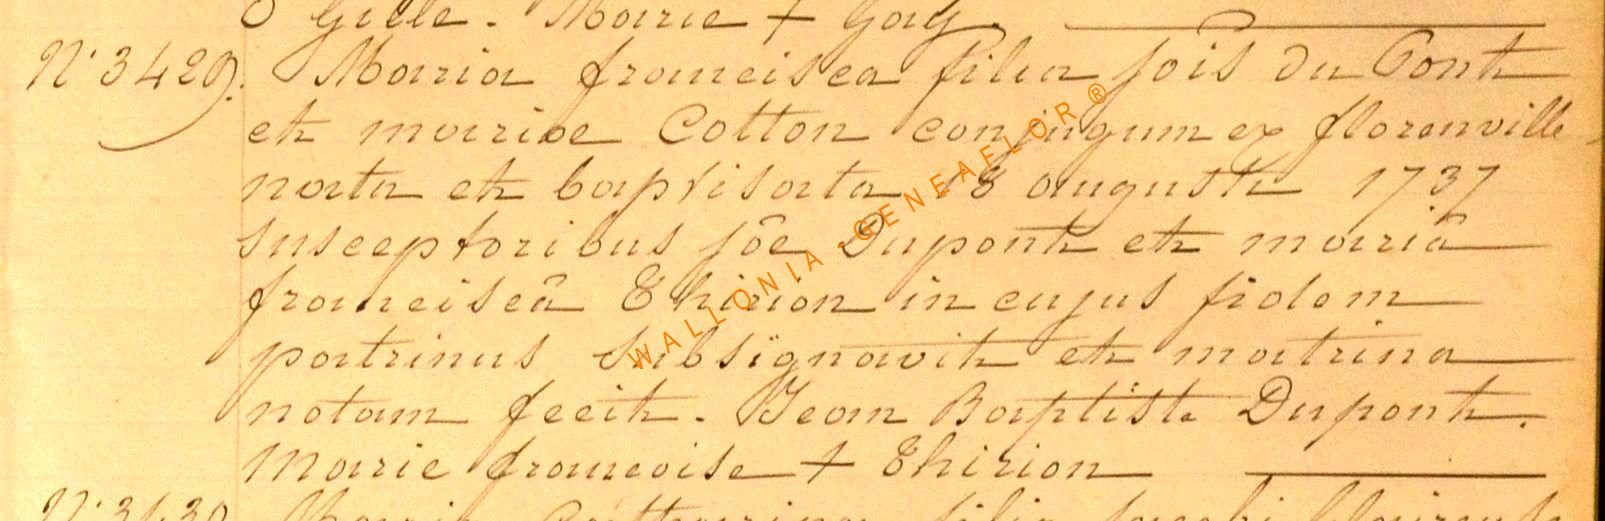 & Gille. Marie + Goug.
N° 3429. Maria francisca filia jois du Pont
et mariae Cotton conjugum ex florenville
nata et baptisata 18 augusti 1737
susceptoribus jôe Dupont et mariâ
franciscâ Thirion in cujus fidem
patrinus subsignavit et matrina
notam fecit. Jean Baptiste Dupont.
Marie francoise + Thirion
N° 3430 Maria Catharina filia jacobi
WALLONIA-GENEAFLOR®